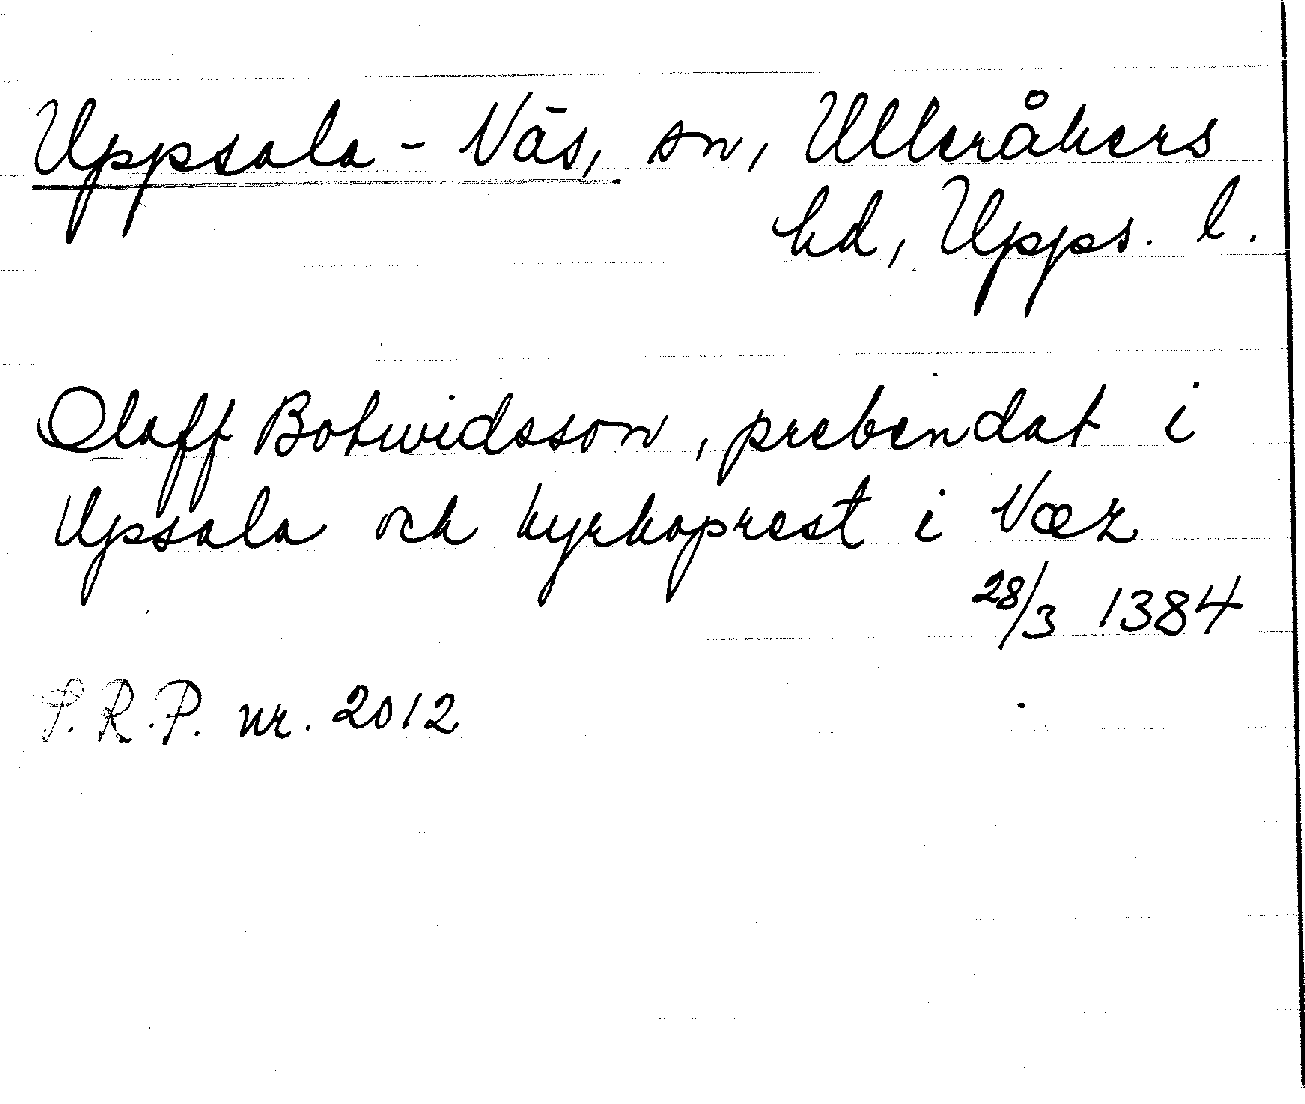 Uppsala-Näs, sn, Ulleråkers
hd, Upps. l.
Olaff Botwidsson, prebendat i
Upsala och kyrkoprest i Næz
28/3 1384
S.R.P. nr. 2012